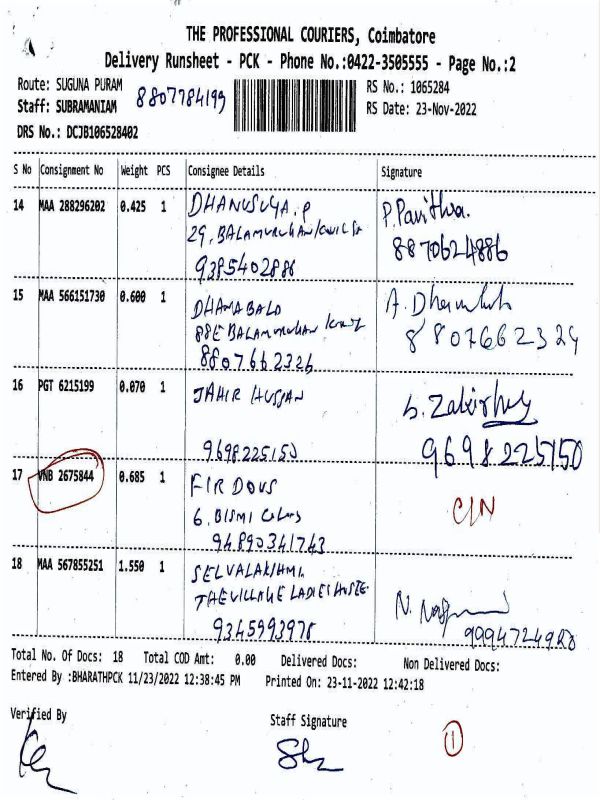 THE PROFESSIONAL COURIERS, Coimbatore
Delivery Runsheet - PCK - Phone No.:0422-3505555 - Page No.:2
Route: SUGUNA PURAM
RS No.: 1065284
Staff: SUBRAMANIAM 8807784199
RS Date: 23-Nov-2022
DRS No.: DCJB106528402
S No Consignment No Weight PCS Consignee Details Signature
14 MAA 288296202 0.425 1 DHANUSUYA. P P. Pavithra.
29, BALAMURUHAN
9385402886 8870624886
15 MAA 566151730 0.600 1 DHAMABALO A.
88E BALAMURUHAN 8807662324
8807662326
16 PGT 6215199 0.070 1 JAHIR HUSSAN
9698225150 9698225150
17 VNB 2675844 0.685 1 FIRDOUS C/N
6. BISMI
94890341743
18 MAA 567855251 1.550 1 SELVALAKSHMI
THE VILLAGE LADIES
9345993978 N.
Total No. Of Docs: 18 Total COD Amt: 0.00 Delivered Docs: Non Delivered Docs:
Entered By :BHARATHPCK 11/23/2022 12:38:45 PM Printed On: 23-11-2022 12:42:18
Verified By
Staff Signature
1